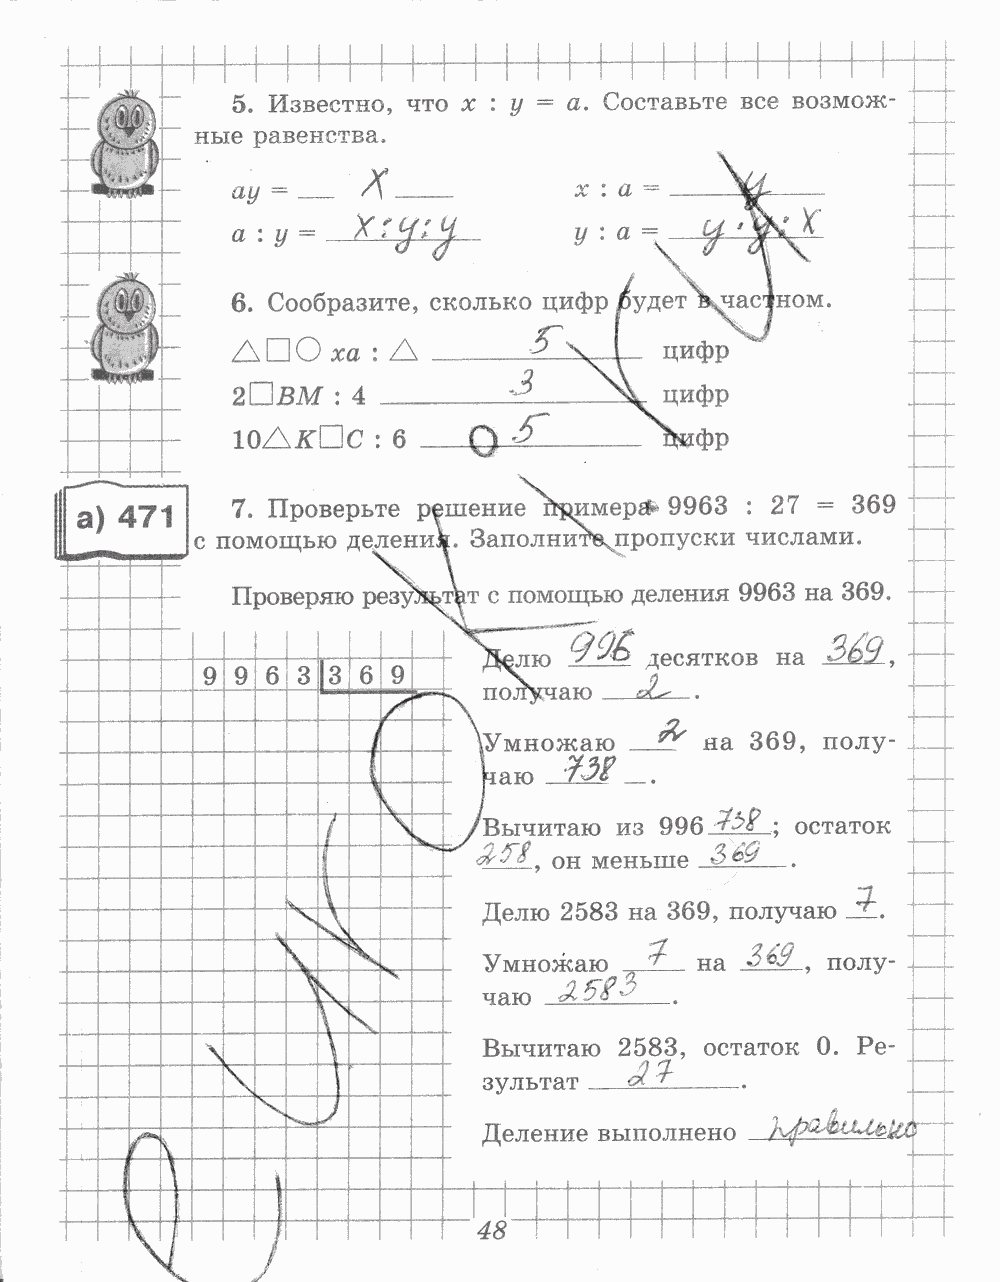 5. Известно, что x : y = a. Составьте все возмож-
ные равенства.
ay = X
x : a = y
a : y = x:y:y
y : a = y·y:x
6. Сообразите, сколько цифр будет в частном.
△□○ xa : △ 5 цифр
2□BM : 4 3 цифр
10△K□C : 6 5 цифр
а) 471
7. Проверьте решение примера 9963 : 27 = 369
с помощью деления. Заполните пропуски числами.
Проверяю результат с помощью деления 9963 на 369.
9 9 6 3 3 6 9
Делю 996 десятков на 369,
получаю 2.
Умножаю 2 на 369, полу-
чаю 738.
Вычитаю из 996 738; остаток
258, он меньше 369.
Делю 2583 на 369, получаю 7.
Умножаю 7 на 369, полу-
чаю 2583.
Вычитаю 2583, остаток 0. Ре-
зультат 27.
Деление выполнено правильно
48